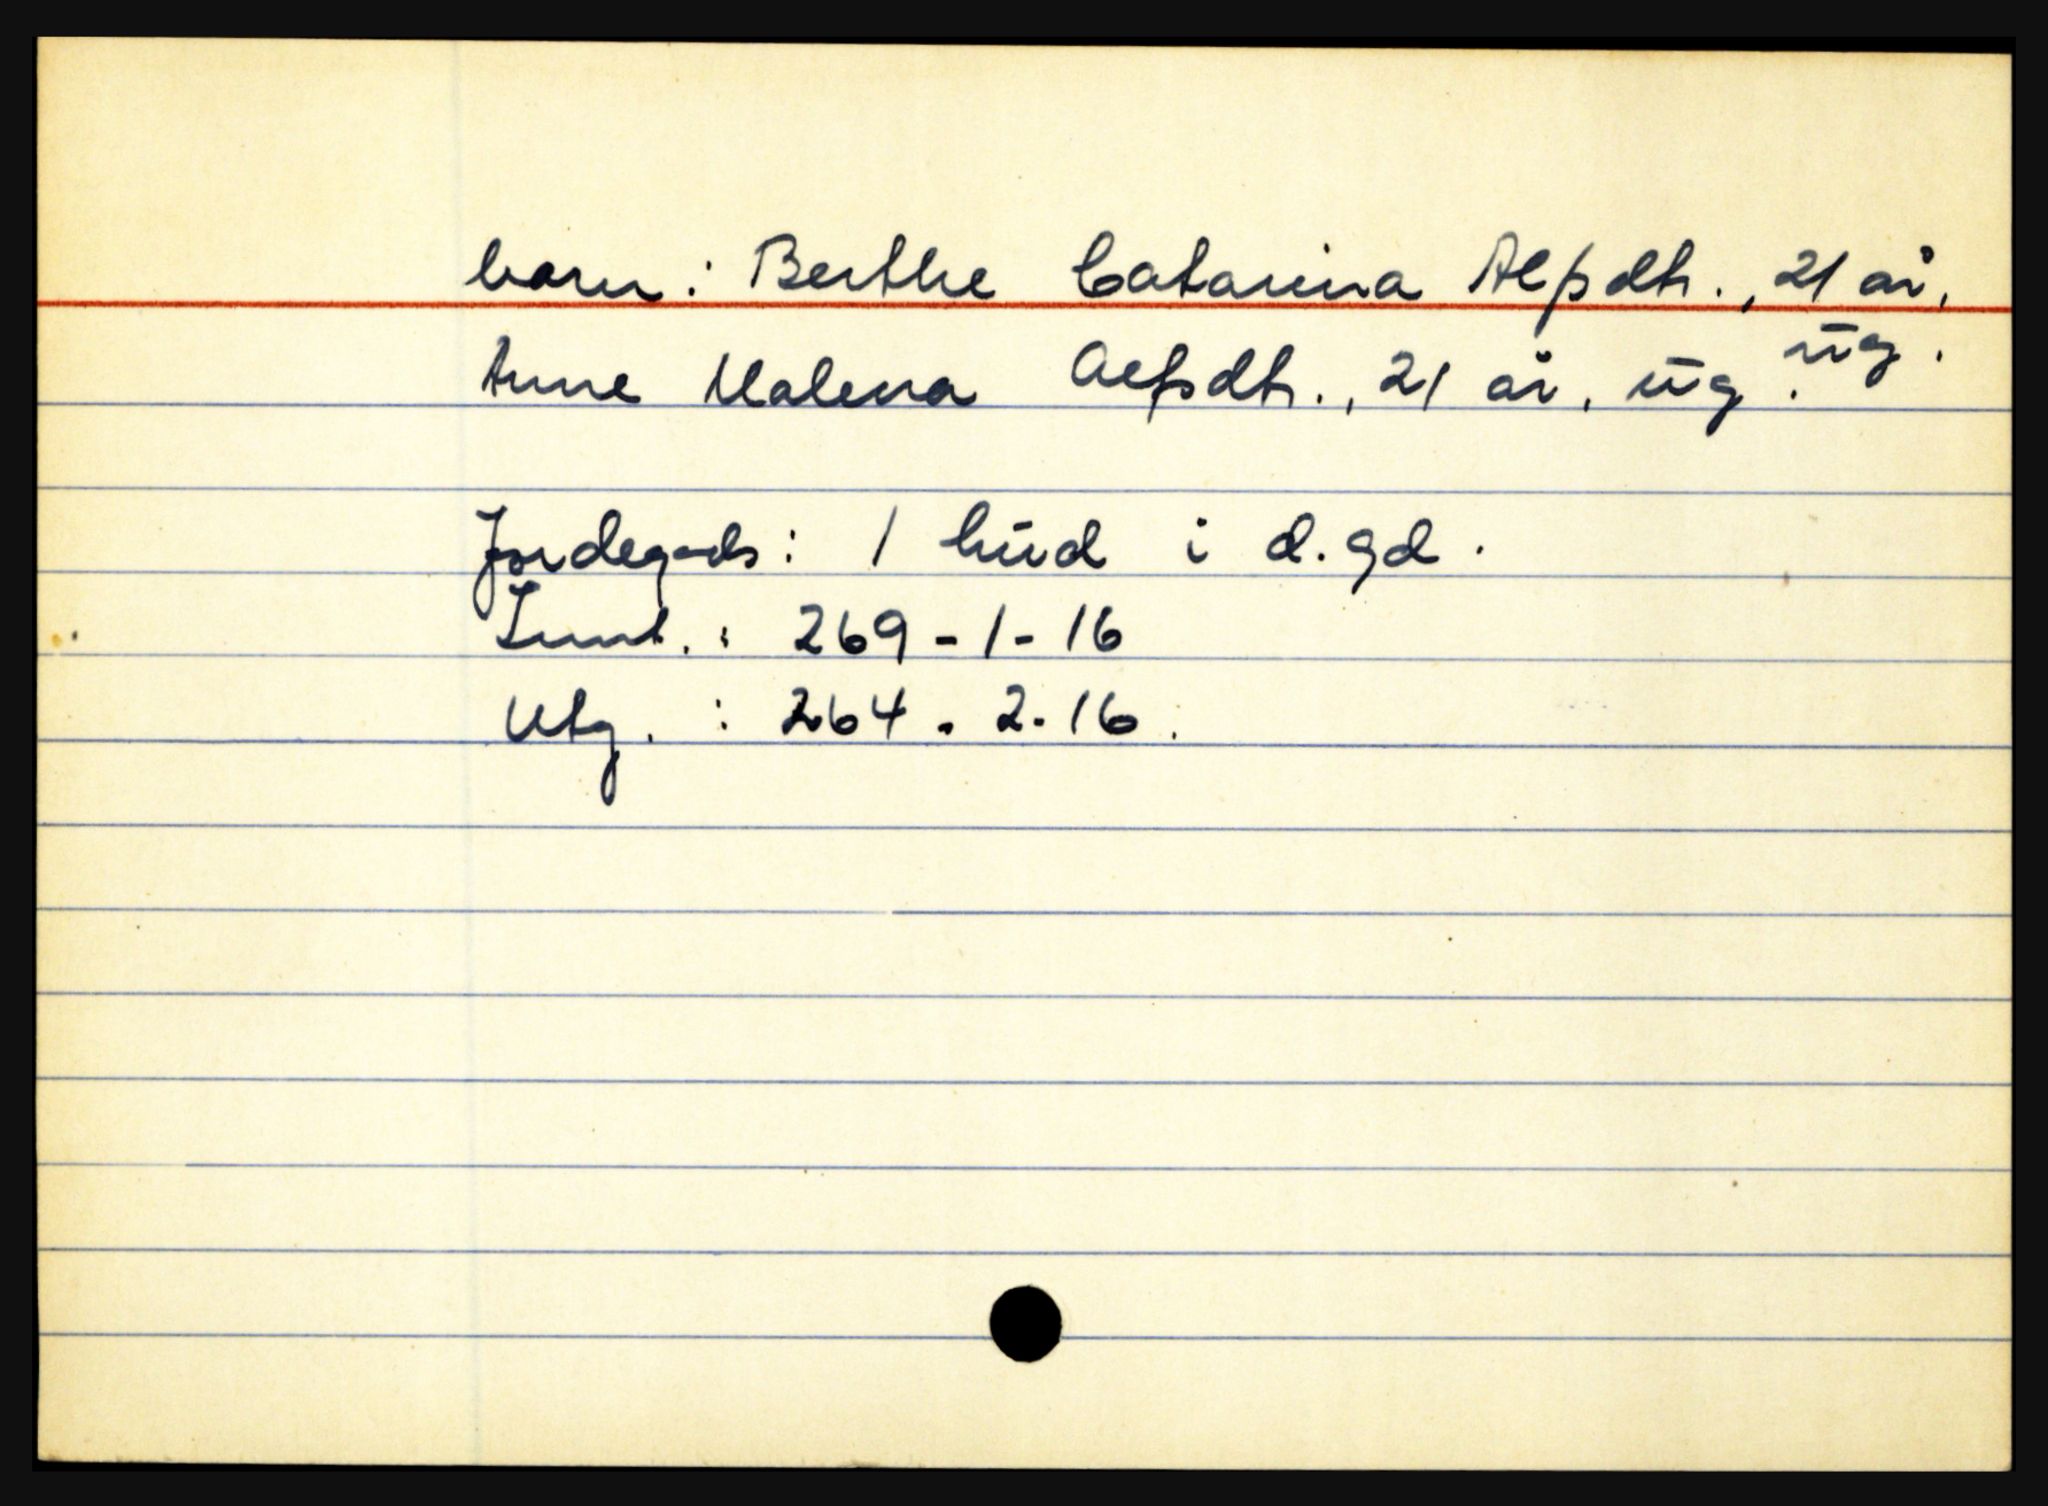 barn: Berthe Catarina Alfsdtr., 21 år,
ug.
Anne Malena Alfsdtr., 21 år, ug.
Jordegods: 1 hud i d.gd.
Innt.: 269-1-16
Utg.: 264-2-16.